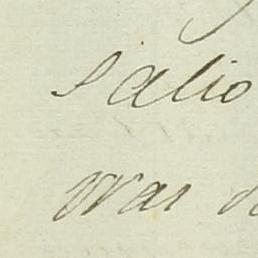 salio
was d